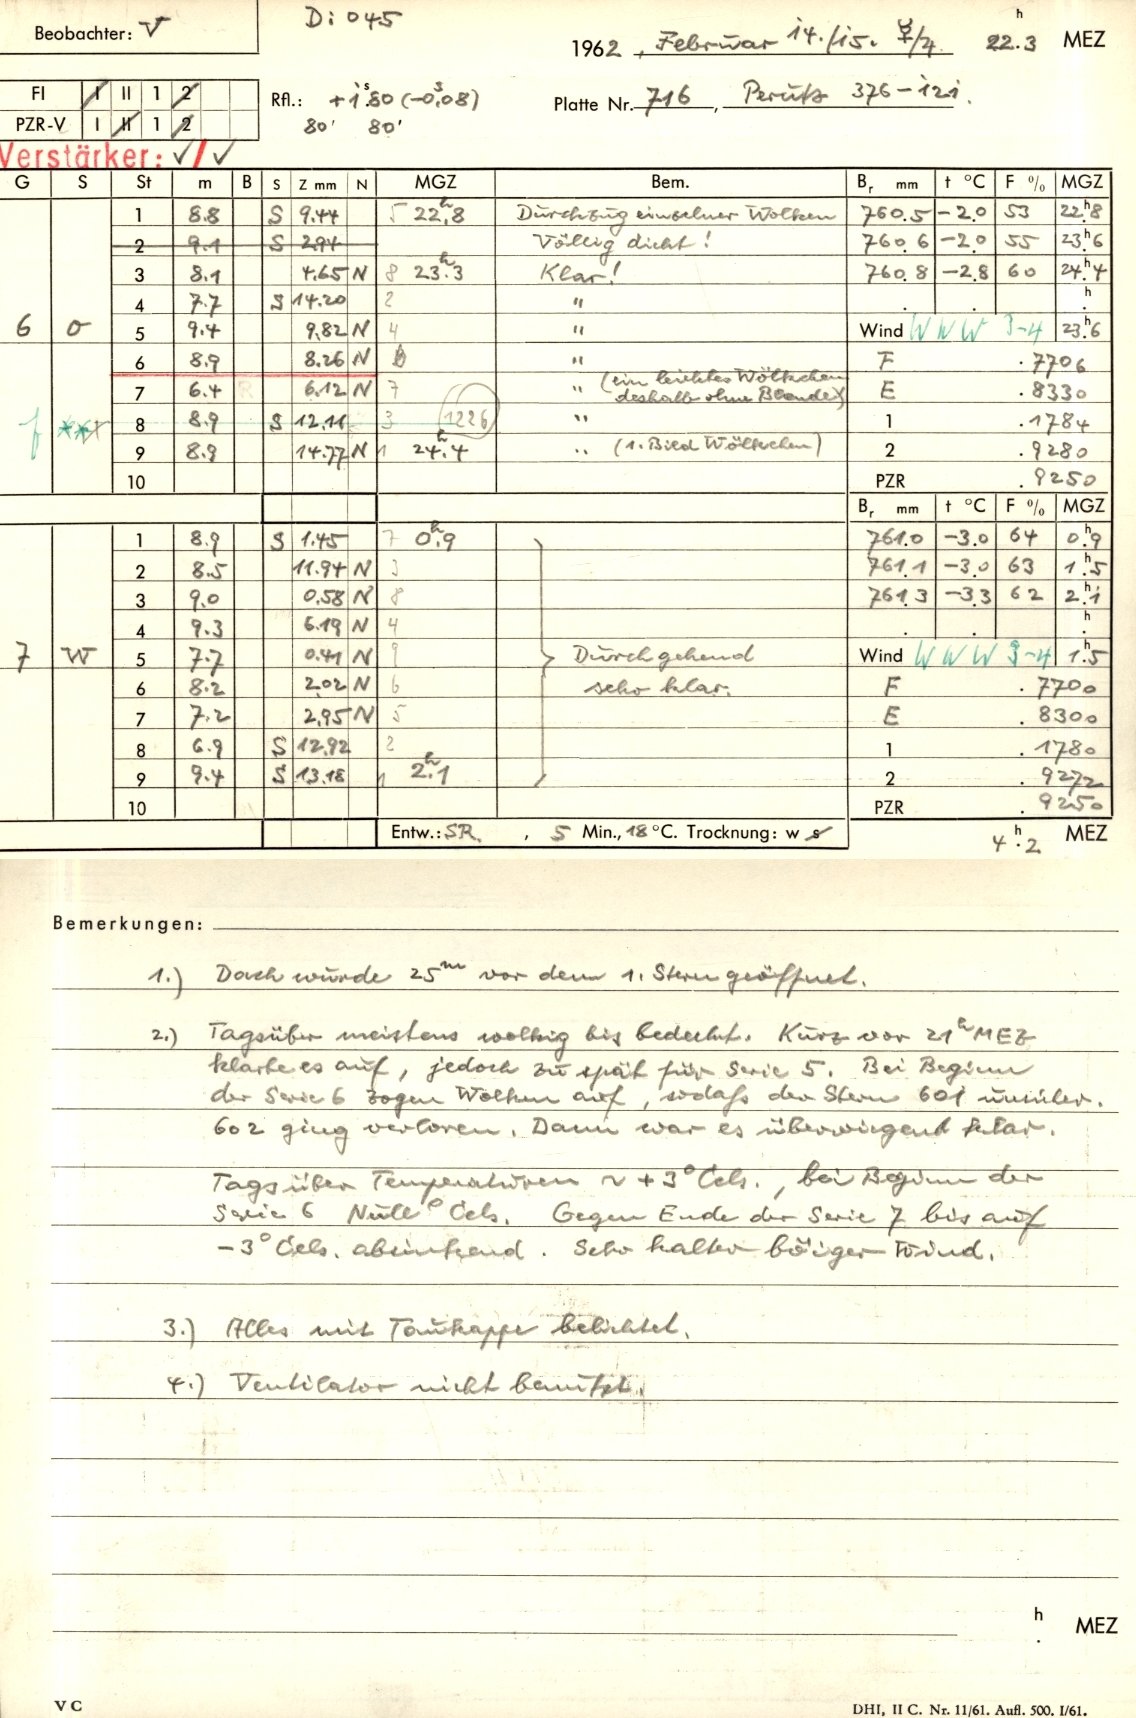 Di 045
Beobachter: V
1962, Februar 14./15. ☿/♃ 22.3 h MEZ
FI I II 1 2
PZR-V I II 1 2
Rfl.: +1.80 (-0.08)
80' 80'
Platte Nr. 716, Perutz 376-121.
Verstärker: ✓/✓
G S St m B S Z mm N MGZ Bem. Br mm t °C F % MGZ
1 8.8 S 9.44 5 22.8 Durchzug einzelner Wolken 760.5 -2.0 53 22.8
2 9.1 S 2.94 Völlig dicht! 760.6 -2.0 55 23.6
3 8.1 4.65 N 8 23.3 Klar! 760.8 -2.8 60 24.4
4 7.7 S 14.20 2 " . . h
6 o 5 9.4 9.82 N 4 " Wind WNW 3-4 23.6
6 8.9 8.26 N 6 " F .7706
7 6.4 6.12 N 7 " (ein leichtes Wölkchen deshalb ohne Blende) E .8330
8 8.9 S 12.11 3 1226 " 1 .1784
9 8.9 14.77 N 1 24.4 " (1. Bild Wölkchen) 2 .9280
10 PZR .9250
Br mm t °C F % MGZ
1 8.9 S 1.45 7 0.9 761.0 -3.0 64 0.9
2 8.5 11.94 N 3 761.1 -3.0 63 1.5
3 9.0 0.58 N 8 761.3 -3.3 62 2.1
4 9.3 6.19 N 4 . . h
7 W 5 7.7 0.41 N 9 Durchgehend Wind WNW 3-4 1.5
6 8.2 2.02 N 6 sehr klar. F .7700
7 7.2 2.95 N 5 E .8300
8 6.9 S 12.92 2 1 .1780
9 9.4 S 13.18 1 2.1 2 .9272
10 PZR .9250
Entw.: SR. , 5 Min., 18 °C. Trocknung: w s 4.2 h MEZ
Bemerkungen:
1.) Dach wurde 25m vor dem 1. Stern geöffnet.
2.) Tagsüber meistens wolkig bis bedeckt. Kurz vor 21h MEZ
klarte es auf, jedoch zu spät für Serie 5. Bei Beginn
der Serie 6 zogen Wolken auf, sodaß der Stern 601 unsicher.
602 ging verloren. Dann war es überwiegend klar.
Tagsüber Temperaturen ~ +3° Cels., bei Beginn der
Serie 6 Null° Cels. Gegen Ende der Serie 7 bis auf
-3° Cels. absinkend. Sehr kalter böiger Wind.
3.) Alles mit Taukappe belichtet.
4.) Ventilator nicht benutzt.
h MEZ
V C
DHI, II C. Nr. 11/61. Aufl. 500. I/61.